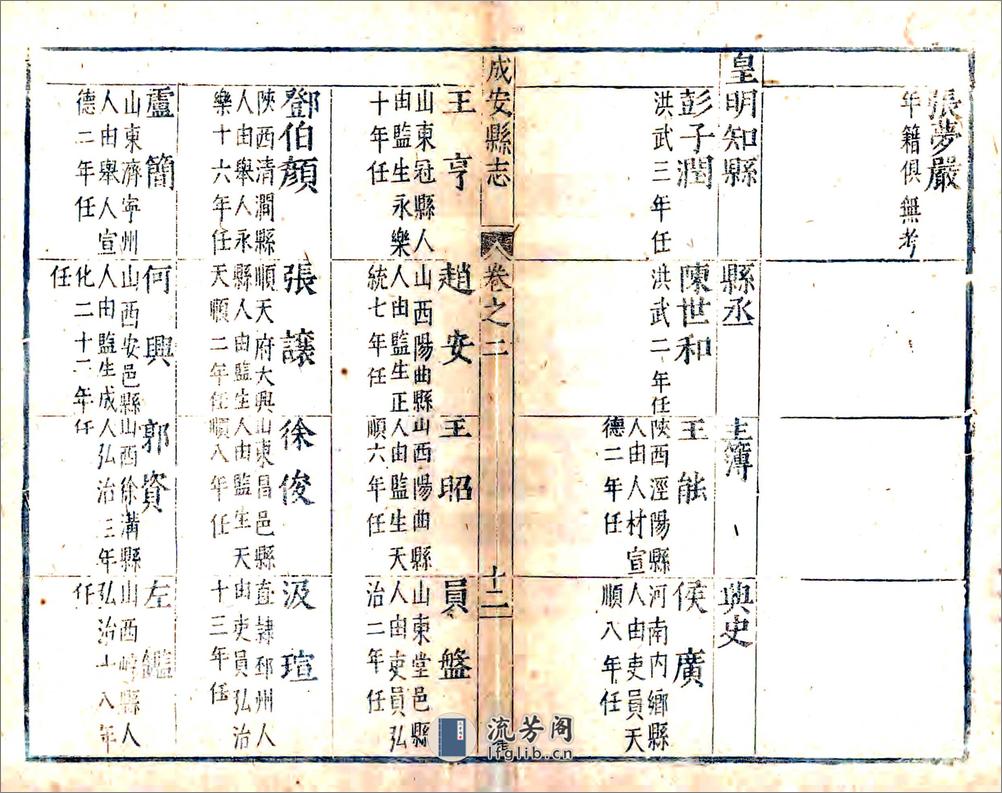 張夢嚴
年籍俱無考
皇明知縣
縣丞
主簿
典史
彭子潤
洪武三年任
陳世和
洪武二年任
王能
陝西涇陽縣
人由人材宣
德二年任
侯廣
河南內鄉縣
人由吏員天
順八年任
成安縣志
卷之二
十二
王亨
山東冠縣人
由監生永樂
十年任
趙安
山西陽曲縣
人由監生正
統七年任
王昭
山西陽曲縣
人由監生天
順六年任
員盤
山東堂邑縣
人由吏員弘
治二年任
鄧伯顏
陝西清澗縣
人由舉人永
樂十六年任
張讓
順天府大興
縣人由監生
天順二年任
徐俊
山東昌邑縣
人由監生天
順八年任
汲瑄
直隸邳州人
由吏員弘治
十三年任
盧簡
山東濟寧州
人由舉人宣
德二年任
何興
山西安邑縣
人由監生成
化二十二年
任
郭資
山西徐溝縣
人弘治三年
任
左鑑
山西崞縣人
弘治十八年
任
流芳阁
lfglib.cn